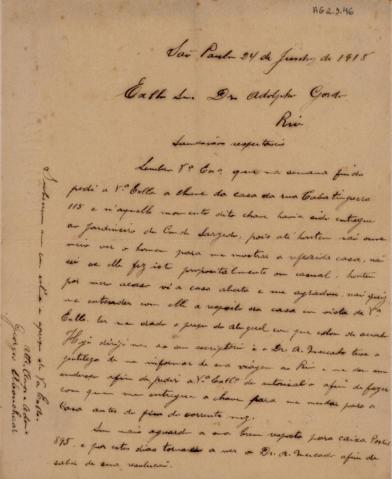 AG 2.3.46
São Paulo 24 de Junho de 1918
Exmo Snr Dr. Adolpho Gordo
Rio
Saudações respeitosas
Lembro Vª Exª que na semana finda
pedi a Vª Exª a chave da casa da rua Tabatinguera
115 e n'aquelle momento dita chave havia sido entregue
ao Jardineiro do Conde Sarzedo, pois até hontem não
ver o homem para me mostrar a referida casa, não
sei se elle fez isto propositalmente ou casual, hontem
por mero acaso vi a casa aberta e me agradou, não quiz
me entender com elle a respeito da casa em vista de Vª
Exª ter me dado o preço do aluguel com que estou de accordo
Hoje dirigi-me ao seu escriptorio e o Dr A. Mercado teve a
gentileza de me informar de sua viagem ao Rio e me deu seu
endereço afim de pedir a Vª Exª de autorisal-o afim de fazer
com quem me entregue a chave para me mudar para a
Casa antes do fim do corrente mez.
Sem mais aguardo a sua bem resposta para caixa Postal
895, e por estes dias tornarei a ver o Dr. A. Mercado afim de
saber de sua resolução.
de Va Exa.
Attº
George